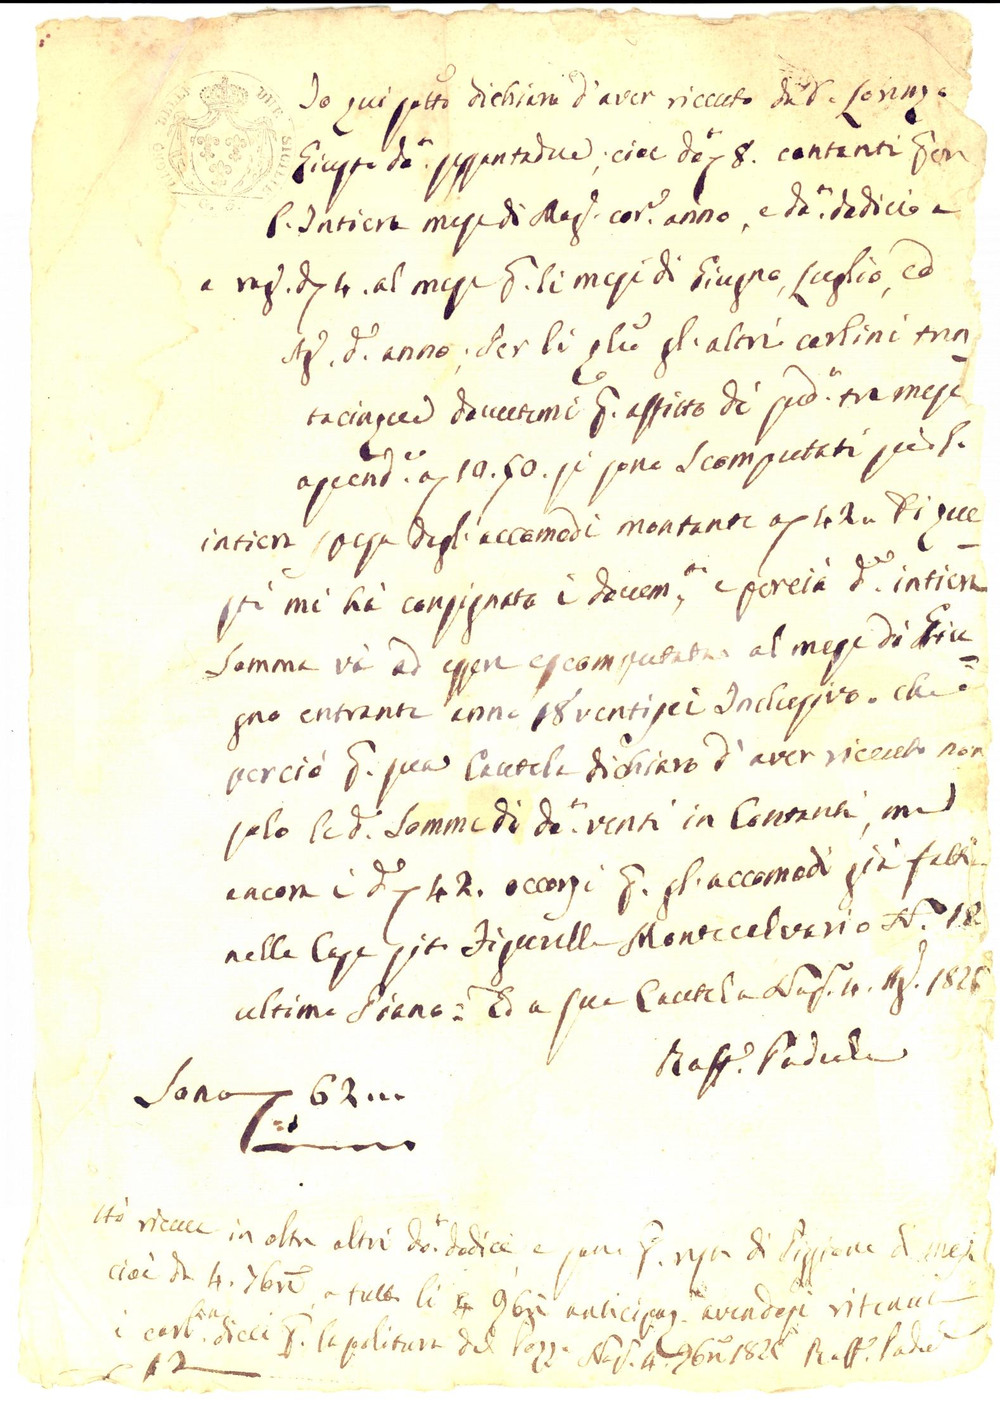 Io qui sotto dichiaro d'aver riceuto da D. Lorenzo
Giusti do.ti sessantadue, cioè do.ti 8. contanti per
l'Intiero mese di Mag.o cor.e anno, e do.ti dodici a
a rag.e di 4. al mese p. li mesi di Giugno, Luglio, ed
Ag.o d.o anno; Per li gl'altri carlini tren
tacinque p. affitto di sud.i tre mesi
ascend.o a 10.50. si sono Scomputati sù l'
intiera spesa degli accomodi montante a 42.. Di que
sti mi hà consignato i docum.ti e perciò d.a intiera
Somma và ad essere escomputata al mese di Giu
gno entrante anno 18ventisei Inclusivo. che
perciò p. sua Cautela dichiaro d'aver riceuto non
solo le d.e Somme di do.ti venti in Contanti, ma
ancora i d.i 42. occorsi p. gl'accomodi già fatti
nella Casa sita Figurelle Montecalvario N.o 18
ultimo Piano = Ed a sua Cautela Nap. 4. Ag.o 1825
Raff.e Padula
Sono 62...
Hò riceuto in oltre altri do.ti dodici, e sono p. tre mesi di Piggione
cioè da 4. 7bre, a tutto li 4 9bre anticipat. avendosi ritenuti
i carlini dieci p. la politura del Pozzo Nap. 4. 9bre 1825 Raff.e Padula
12